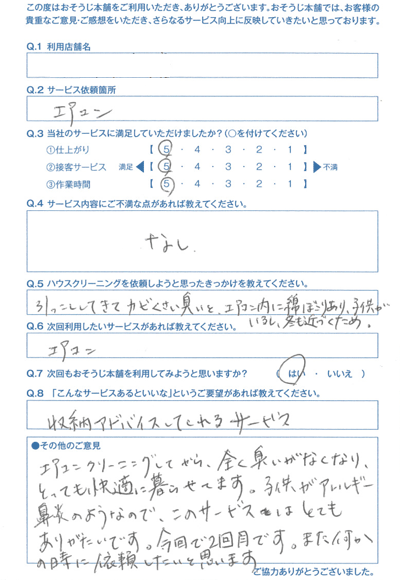 この度はおそうじ本舗をご利用いただき、ありがとうございます。おそうじ本舗では、お客様の
貴重なご意見・ご感想をいただき、さらなるサービス向上に反映していきたいと思っております。
Q.1 利用店舗名
Q.2 サービス依頼箇所
エアコン
Q.3 当社のサービスに満足していただけましたか？(○を付けてください)
①仕上がり 【 5 ・ 4 ・ 3 ・ 2 ・ 1 】
②接客サービス 満足 ◀【 5 ・ 4 ・ 3 ・ 2 ・ 1 】▶ 不満
③作業時間 【 5 ・ 4 ・ 3 ・ 2 ・ 1 】
Q.4 サービス内容にご不満な点があれば教えてください。
なし
Q.5 ハウスクリーニングを依頼しようと思ったきっかけを教えてください。
引っこししてきてカビくさい臭いと、エアコン内に綿ぼこりあり、子供が
いるし、冬も近づくため。
Q.6 次回利用したいサービスがあれば教えてください。
エアコン
Q.7 次回もおそうじ本舗を利用してみようと思いますか？ ( はい ・ いいえ )
Q.8 「こんなサービスあるといいな」というご要望があれば教えてください。
収納アドバイスしてくれるサービス
●その他のご意見
エアコンクリーニングしてから、全く臭いがなくなり、
とっても快適に暮らせてます。子供がアレルギー
鼻炎のようなので、このサービスはとても
ありがたいです。今回で2回目です。また何か
の時に依頼したいと思います
ご協力ありがとうございました。